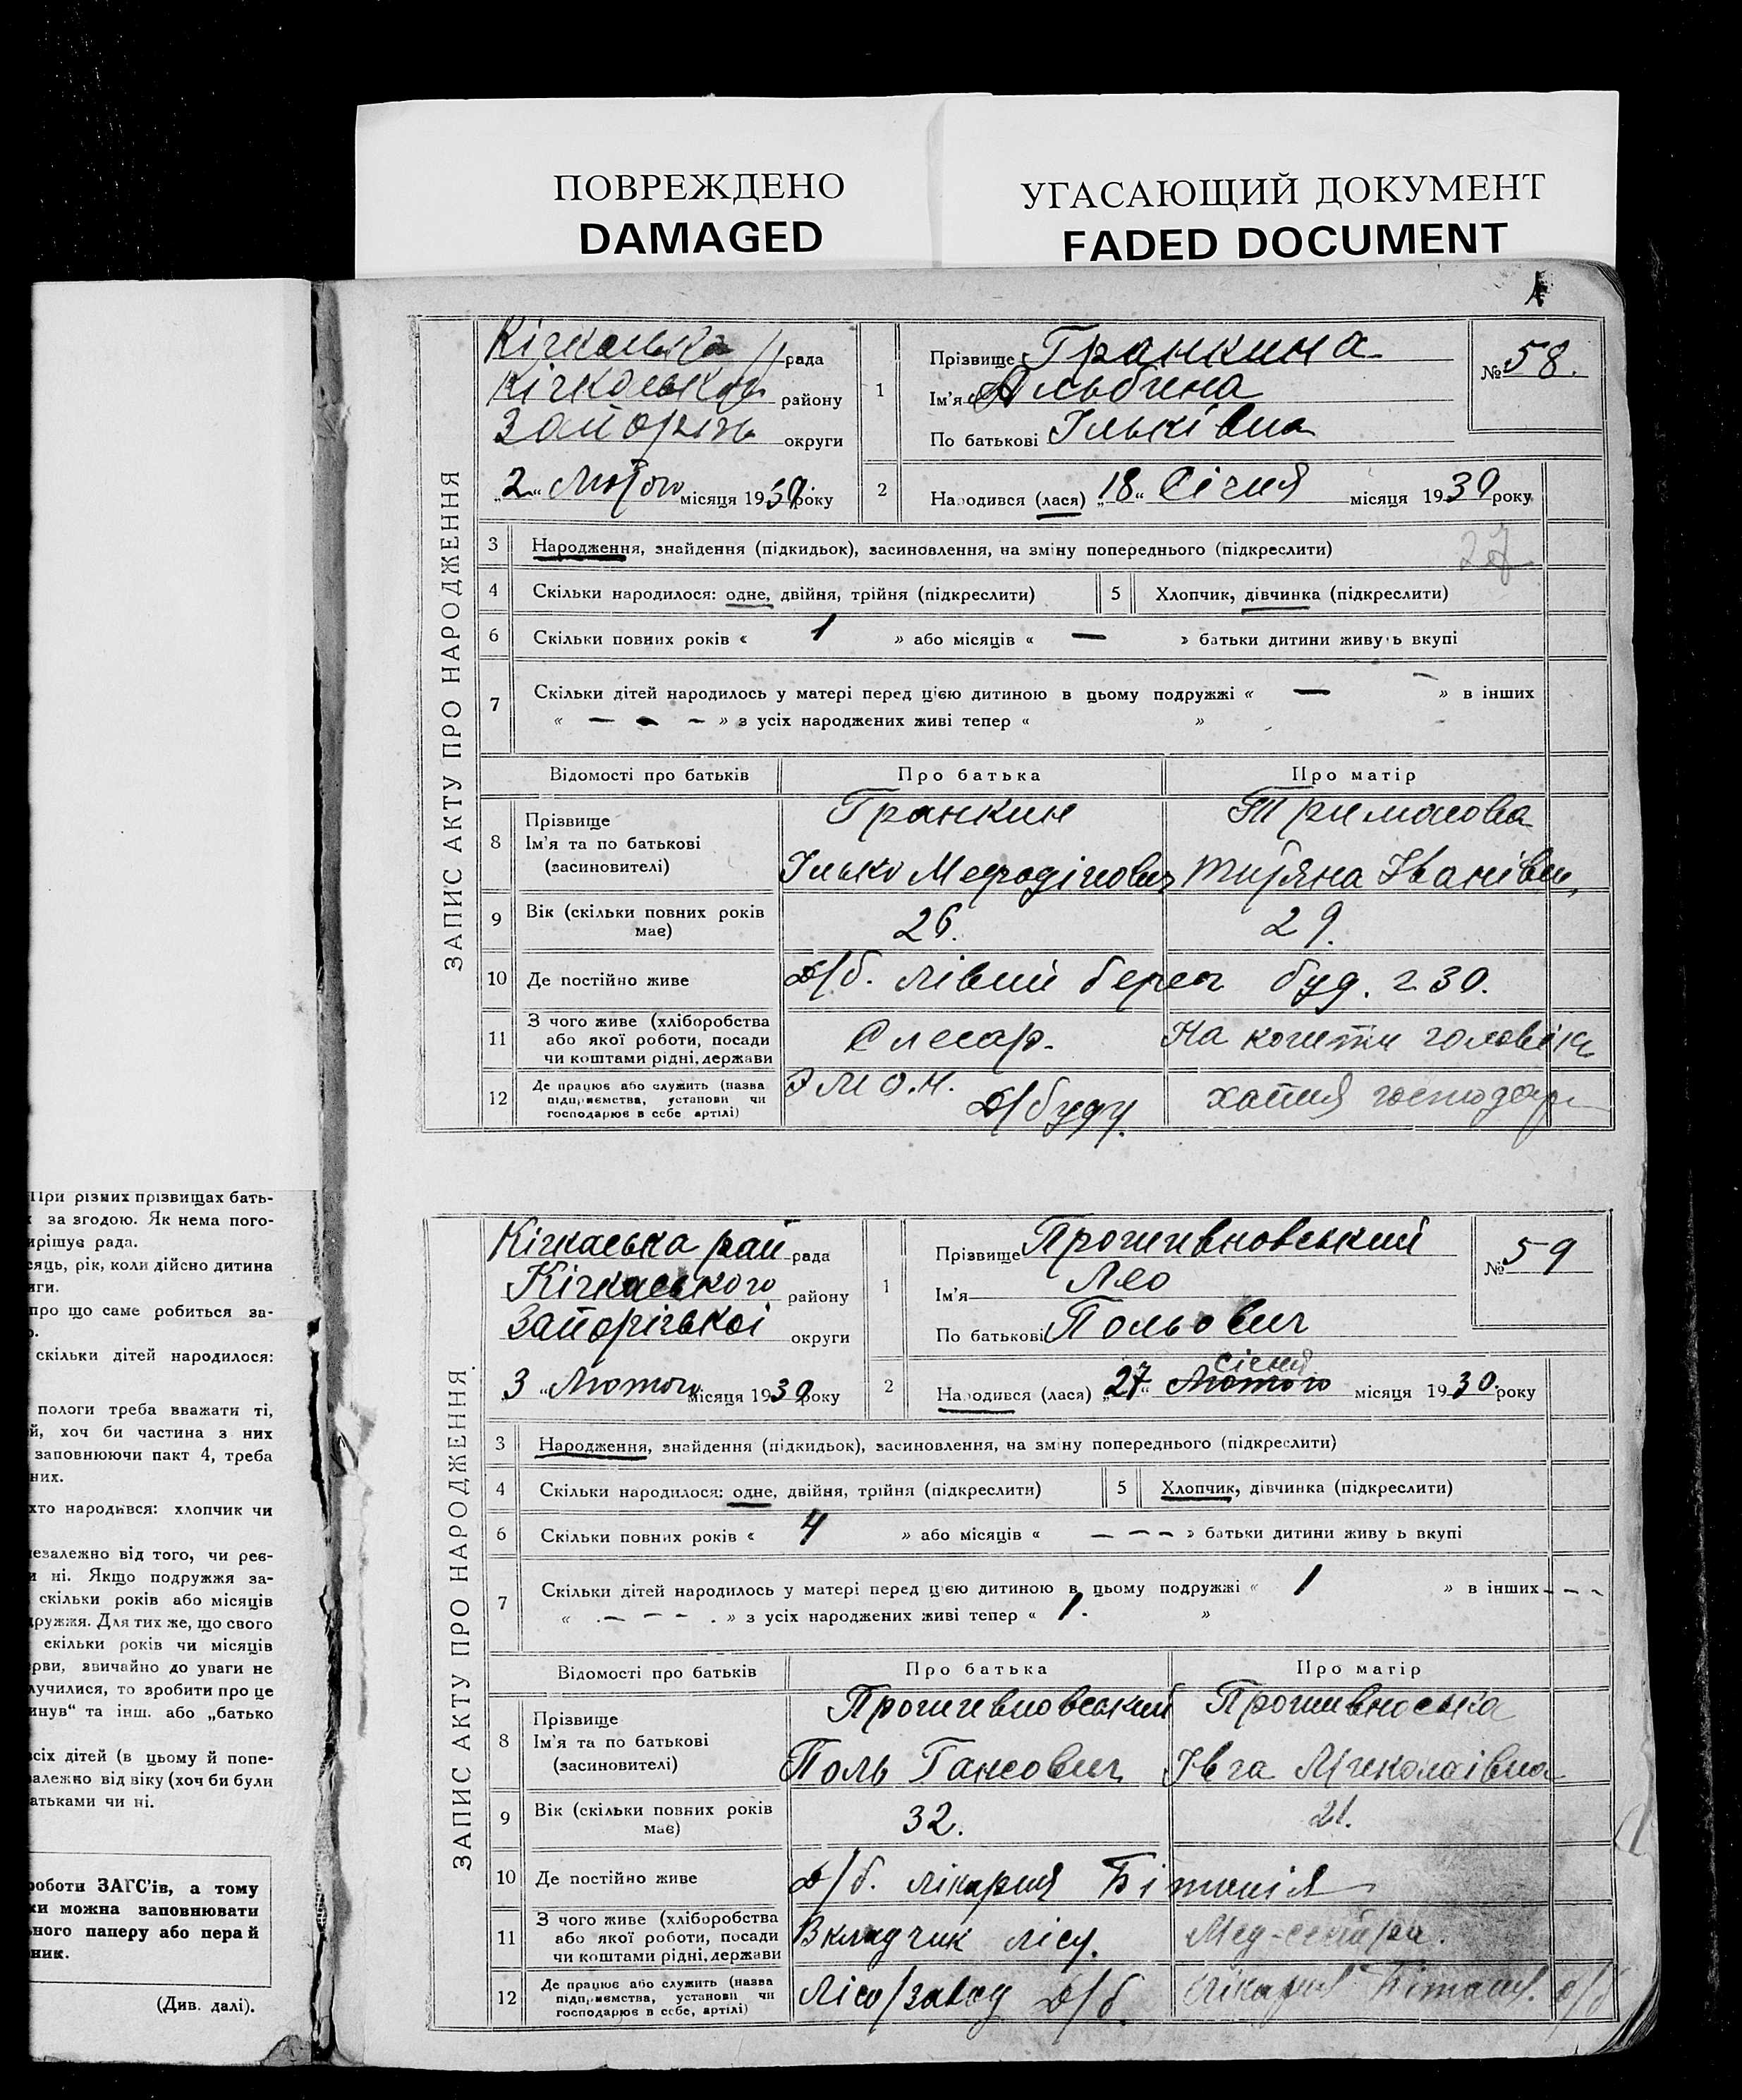 ПОВРЕЖДЕНО
DAMAGED
УГАСАЮЩИЙ ДОКУМЕНТ
FADED DOCUMENT
При різних прізвищах бать-
за згодою. Як нема пого-
рішує рада.
сяць, рік, коли дійсно дитина
про що саме робиться за-
скільки дітей народилося:
пологи треба вважати ті,
й, хоч би частина з них
заповнюючи пакт 4, треба
них.
хто народився: хлопчик чи
незалежно від того, чи реє-
ні. Якщо подружжя за-
скільки років або місяців
дружжя. Для тих же, що свого
скільки років чи місяців
рви, звичайно до уваги не
лучилися, то зробити про це
инув“ та інш. або „батько
всіх дітей (в цьому й попе-
залежно від віку (хоч би були
атьками чи ні.
роботи ЗАГС'ів, а тому
ки можна заповнювати
ного паперу або пера й
ник.
(Див. далі).
ЗАПИС АКТУ ПРО НАРОДЖЕННЯ
Кічкаська рада
Кічкаського району
Запоріж округи
„2“ Лютого місяця 1930 року
1
Прізвище Гранкина
Ім'я Альбина
По батькові Ільківна
№ 58.
2
Народився (лася) „18“ Січня місяця 1930 року
3 Народження, знайдення (підкидьок), засиновлення, на зміну попереднього (підкреслити)
27
4 Скільки народилося: одне, двійня, трійня (підкреслити) 5 Хлопчик, дівчинка (підкреслити)
6 Скільки повних років « 1 » або місяців « — » батьки дитини живуть вкупі
7 Скільки дітей народилось у матері перед цією дитиною в цьому подружжі « — » в інших
« — — — » з усіх народжених живі тепер « »
Відомості про батьків Про батька Про матір
8 Прізвище
Ім'я та по батькові
(засиновителі)
Гранкин
Ілько Мефодійович
Тримасова
Титяна Іванівна
9 Вік (скільки повних років має) 26. 29.
10 Де постійно живе Д/б. лівий берег буд. 230.
11 З чого живе (хліборобства
або якої роботи, посади
чи коштами рідні, держави
Слесар. На кошти чоловіка
12 Де працює або служить (назва
підприємства, установи чи
господарює в себе артілі)
Д/буду.
хатня господар
ЗАПИС АКТУ ПРО НАРОДЖЕННЯ
Кічкаська рай рада
Кічкаського району
Запорізької округи
„3“ Лютого місяця 1930 року
1
Прізвище Прошивновський
Ім'я Лео
По батькові Польович
№ 59
2
Січня
Народився (лася) „27“ Лютого місяця 1930. року
3 Народження, знайдення (підкидьок), засиновлення, на зміну попереднього (підкреслити)
4 Скільки народилося: одне, двійня, трійня (підкреслити) 5 Хлопчик, дівчинка (підкреслити)
6 Скільки повних років « 4 » або місяців « — — — » батьки дитини живуть вкупі
7 Скільки дітей народилось у матері перед цією дитиною в цьому подружжі « 1 » в інших - - -
« — — — » з усіх народжених живі тепер « 1. »
Відомості про батьків Про батька Про матір
8 Прізвище
Ім'я та по батькові
(засиновителі)
Прошивновський
Поль Гансович
Прошивноська
Івга Миколаівна
9 Вік (скільки повних років має) 32. 21.
10 Де постійно живе Д/б. лікарня Бітанія
11 З чого живе (хліборобства
або якої роботи, посади
чи коштами рідні, держави
Вкладчик лісу. Мед-сестра.
12 Де працює або служить (назва
підприємства, установи чи
господарює в себе, артілі)
Лісо/завод Д/б
лікарня Бітанія. д/б